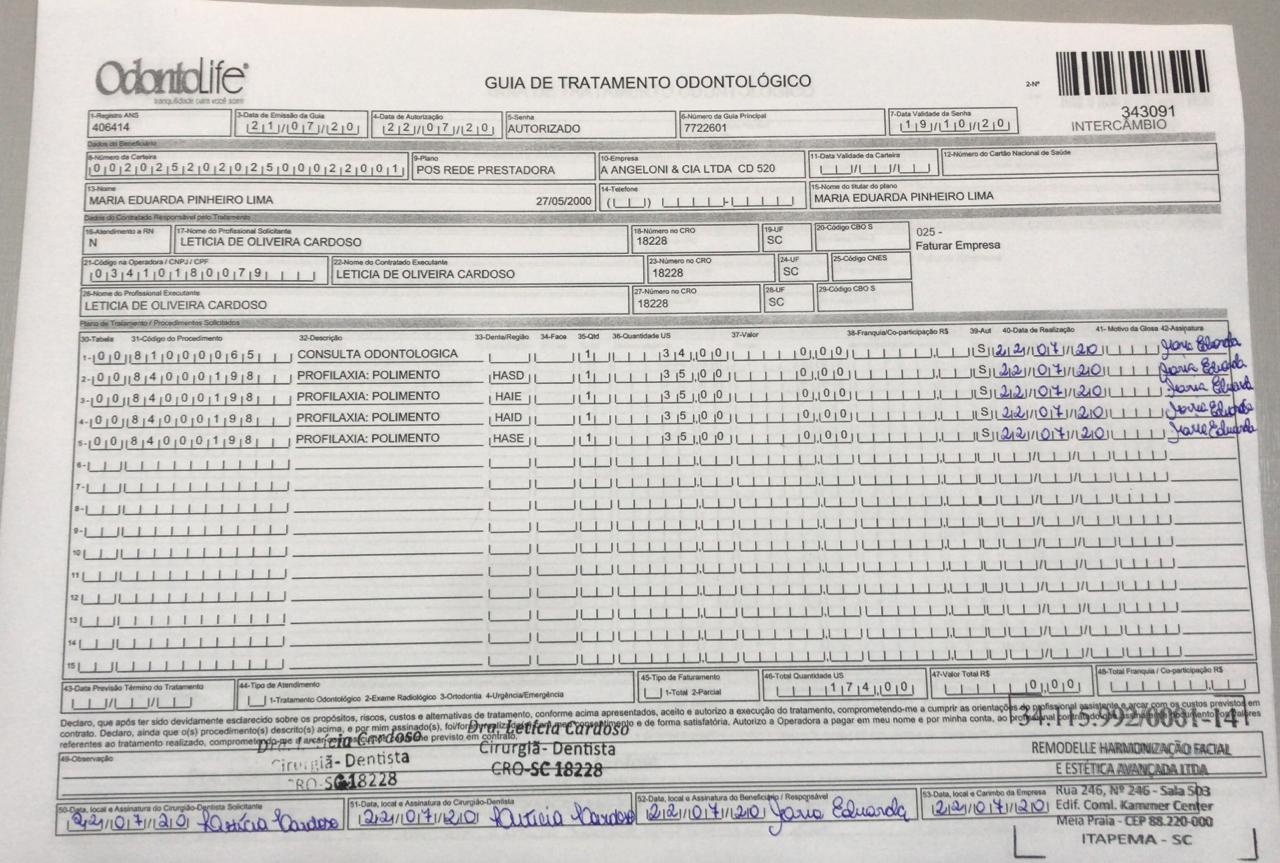 OdontoLife®
tranquilidade para você sorrir
GUIA DE TRATAMENTO ODONTOLÓGICO
2-Nº
343091
INTERCÂMBIO
1-Registro ANS 3-Data de Emissão da Guia 4-Data de Autorização 5-Senha 6-Número da Guia Principal 7-Data Validade da Senha
406414 21/07/20 22/07/20 AUTORIZADO 7722601 19/10/20
Dados do Beneficiário
8-Número da Carteira 9-Plano 10-Empresa 11-Data Validade da Carteira 12-Número do Cartão Nacional de Saúde
00202520202500022001 POS REDE PRESTADORA A ANGELONI & CIA LTDA CD 520
13-Nome 14-Telefone 15-Nome do titular do plano
MARIA EDUARDA PINHEIRO LIMA 27/05/2000 MARIA EDUARDA PINHEIRO LIMA
Dados do Contratado Responsável pelo Tratamento
16-Atendimento a RN 17-Nome do Profissional Solicitante 18-Número no CRO 19-UF 20-Código CBO S
N LETICIA DE OLIVEIRA CARDOSO 18228 SC
025 -
Faturar Empresa
21-Código na Operadora / CNPJ / CPF 22-Nome do Contratado Executante 23-Número no CRO 24-UF 25-Código CNES
03410180079 LETICIA DE OLIVEIRA CARDOSO 18228 SC
26-Nome do Profissional Executante 27-Número no CRO 28-UF 29-Código CBO S
LETICIA DE OLIVEIRA CARDOSO 18228 SC
Plano de Tratamento / Procedimentos Solicitados
30-Tabela 31-Código do Procedimento 32-Descrição 33-Dente/Região 34-Face 35-Qtd 36-Quantidade US 37-Valor 38-Franquia/Co-participação R$ 39-Aut 40-Data de Realização 41- Motivo da Glosa 42-Assinatura
1- 00 81000065 CONSULTA ODONTOLOGICA 1 34,00 0,00 S 22/07/20 Maria Eduarda
2- 00 84000198 PROFILAXIA: POLIMENTO HASD 1 35,00 0,00 S 22/07/20 Maria Eduarda
3- 00 84000198 PROFILAXIA: POLIMENTO HAIE 1 35,00 0,00 S 22/07/20 Maria Eduarda
4- 00 84000198 PROFILAXIA: POLIMENTO HAID 1 35,00 0,00 S 22/07/20 Maria Eduarda
5- 00 84000198 PROFILAXIA: POLIMENTO HASE 1 35,00 0,00 S 22/07/20 Maria Eduarda
6-
7-
8-
9-
10
11
12
13
14
15
43-Data Previsão Término do Tratamento 44-Tipo de Atendimento 45-Tipo de Faturamento 46-Total Quantidade US 47-Valor Total R$ 48-Total Franquia / Co-participação R$
1-Tratamento Odontológico 2-Exame Radiológico 3-Ortodontia 4-Urgência/Emergência 1-Total 2-Parcial 174,00 0,00
Declaro, que após ter sido devidamente esclarecido sobre os propósitos, riscos, custos e alternativas de tratamento, conforme acima apresentados, aceito e autorizo a execução do tratamento, comprometendo-me a cumprir as orientações do profissional assistente e arcar com os custos previstos em
contrato. Declaro, ainda que o(s) procedimento(s) descrito(s) acima, e por mim assinado(s), foi/foram realizado(s) com meu consentimento e de forma satisfatória. Autorizo a Operadora a pagar em meu nome e por minha conta, ao
referentes ao tratamento realizado, comprometendo-me a arcar previsto em contrato.
49-Observação
Cardoso
Cirurgiã- Dentista
CRO-SC 18228
Dra. Letícia Cardoso
Cirurgiã- Dentista
CRO-SC 18228
34.115.992/0001-14
REMODELLE HARMONIZAÇÃO FACIAL
E ESTÉTICA AVANÇADA LTDA
Rua 246, Nº 246 - Sala 503
Edif. Coml. Kammer Center
Meia Praia - CEP 88.220-000
ITAPEMA - SC
50-Data, local e Assinatura do Cirurgião-Dentista Solicitante 51-Data, local e Assinatura do Cirurgião-Dentista 52-Data, local e Assinatura do Beneficiário / Responsável 53-Data, local e Carimbo da Empresa
22/07/20 Letícia Cardoso 22/07/20 Letícia Cardoso 22/07/20 Maria Eduarda 22/07/20